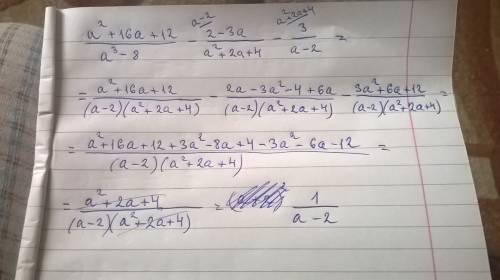 a-2 a²+2a+4
(a²+16a+12)/(a³-8) - (2-3a)/(a²+2a+4) - 3/(a-2) =
= (a²+16a+12)/((a-2)(a²+2a+4)) - (2a-3a²-4+6a)/((a-2)(a²+2a+4)) - (3a²+6a+12)/((a-2)(a²+2a+4)) =
= (a²+16a+12+3a²-8a+4-3a²-6a-12)/((a-2)(a²+2a+4)) =
= (a²+2a+4)/((a-2)(a²+2a+4)) = 1/(a-2)